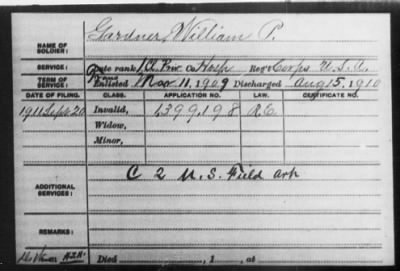 Gardner, William P.
NAME OF SOLDIER:
SERVICE: Late rank, 1 Cl. Priv. Co. Hosp Reg't Corps U.S.A.
TERM OF SERVICE: Trans Enlisted Mar 11, 1909 Discharged Aug 15, 1910
DATE OF FILING. CLASS. APPLICATION NO. LAW. CERTIFICATE NO.
1911 Sept 20 Invalid, 1,399,198 R.E.
Widow,
Minor,
C 2 U.S. Field Art
ADDITIONAL SERVICES:
REMARKS:
Died , 1 , at